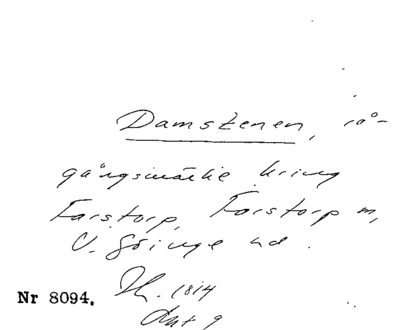 Damstenen, rå-
gångsmärke kring
Farstorp, Farstorp sn,
V. Göinge hd.
Nr 8094. 1814
Akt 9